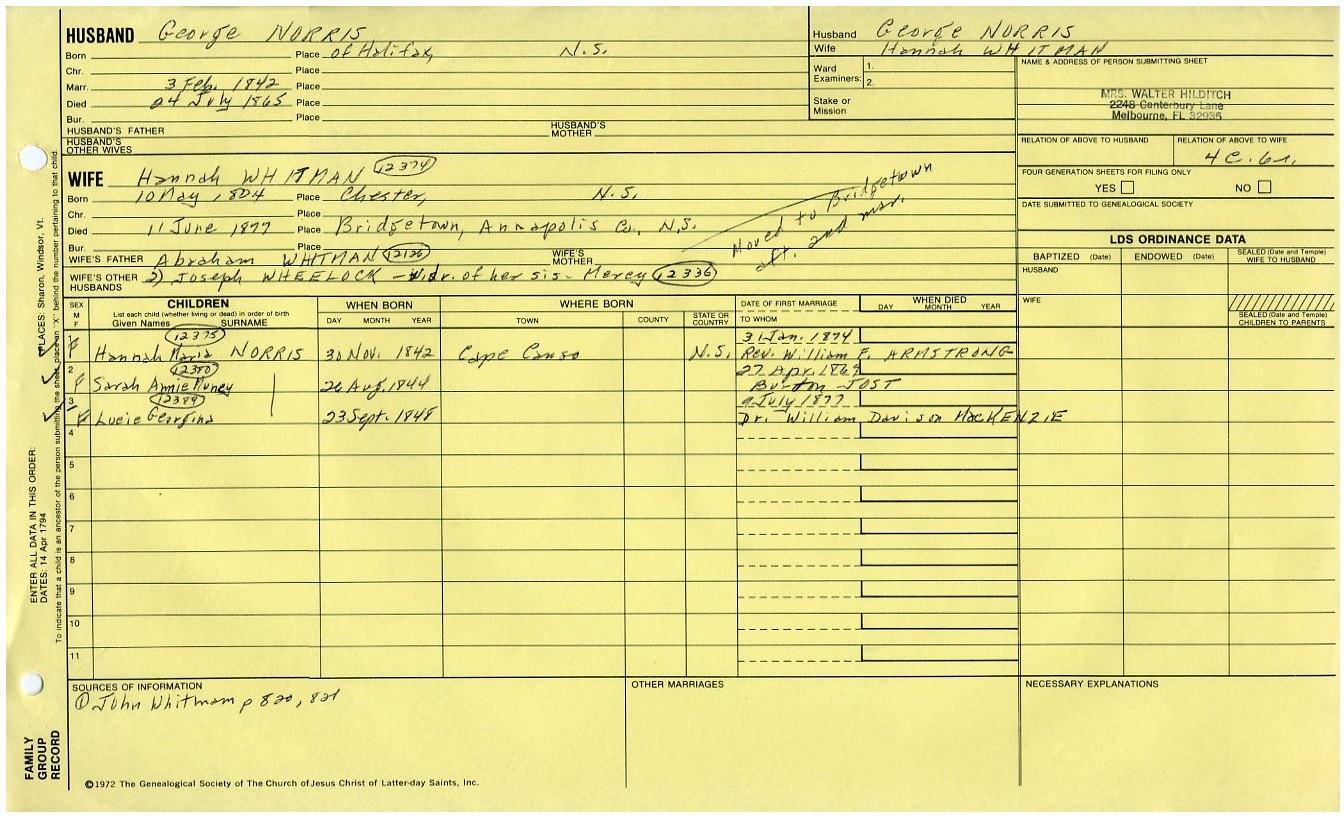 HUSBAND George NORRIS
Born Place of Halifax, N.S.
Chr. Place
Marr. 3 Feb. 1842 Place
Died 04 July 1865 Place
Bur. Place
HUSBAND'S FATHER HUSBAND'S MOTHER
HUSBAND'S OTHER WIVES
Husband George NORRIS
Wife Hannah WHITMAN
Ward Examiners: 1.
2.
Stake or Mission
NAME & ADDRESS OF PERSON SUBMITTING SHEET
MRS. WALTER HILDITCH
2248 Canterbury Lane
Melbourne, FL 32935
RELATION OF ABOVE TO HUSBAND RELATION OF ABOVE TO WIFE
4 C. 6r.
FOUR GENERATION SHEETS FOR FILING ONLY
YES NO
DATE SUBMITTED TO GENEALOGICAL SOCIETY
WIFE Hannah WHITMAN 12374
Born 10 May 1804 Place Chester, N.S.
Chr. Place
Died 11 June 1877 Place Bridgetown, Annapolis Co., N.S.
Bur. Place
Moved to Bridgetown
aft. 2nd mar.
WIFE'S FATHER Abraham WHITMAN 12126 WIFE'S MOTHER
WIFE'S OTHER HUSBANDS 2) Joseph WHEELOCK - Widr. of her sis - Mercy 12336
LDS ORDINANCE DATA
BAPTIZED (Date) ENDOWED (Date) SEALED (Date and Temple) WIFE TO HUSBAND
HUSBAND
WIFE
SEALED (Date and Temple) CHILDREN TO PARENTS
SEX M F
CHILDREN
List each child (whether living or dead) in order of birth
Given Names SURNAME
WHEN BORN
DAY MONTH YEAR
WHERE BORN
TOWN COUNTY STATE OR COUNTRY
DATE OF FIRST MARRIAGE
TO WHOM
WHEN DIED
DAY MONTH YEAR
12375 31 Jan. 1874
F Hannah Maria NORRIS 30 Nov. 1842 Cape Canso N.S. Rev. William F. ARMSTRONG
2 12380 27 Apr. 1869
F Sarah Amie 26 Aug. 1844 Burton JOST
3 12389 9 July 1877
F Lucie Georgina 23 Sept. 1848 Dr. William Davison MacKENZIE
4
5
6
7
8
9
10
11
SOURCES OF INFORMATION
① John Whitman p 820, 821
OTHER MARRIAGES
NECESSARY EXPLANATIONS
©1972 The Genealogical Society of The Church of Jesus Christ of Latter-day Saints, Inc.
FAMILY
GROUP
RECORD
ENTER ALL DATA IN THIS ORDER:
DATES: 14 Apr 1794
PLACES: Sharon, Windsor, Vt.
To indicate that a child is an ancestor of the person submitting the sheet, place an "X" behind the number pertaining to that child.